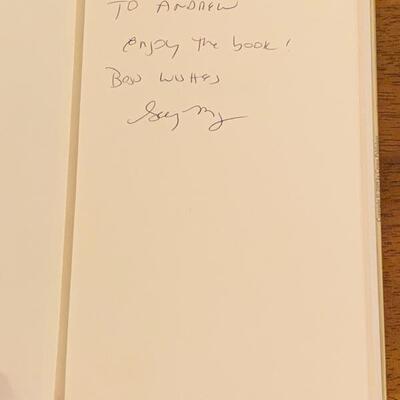 TO ANDREW
enjoy The book!
Best wishes